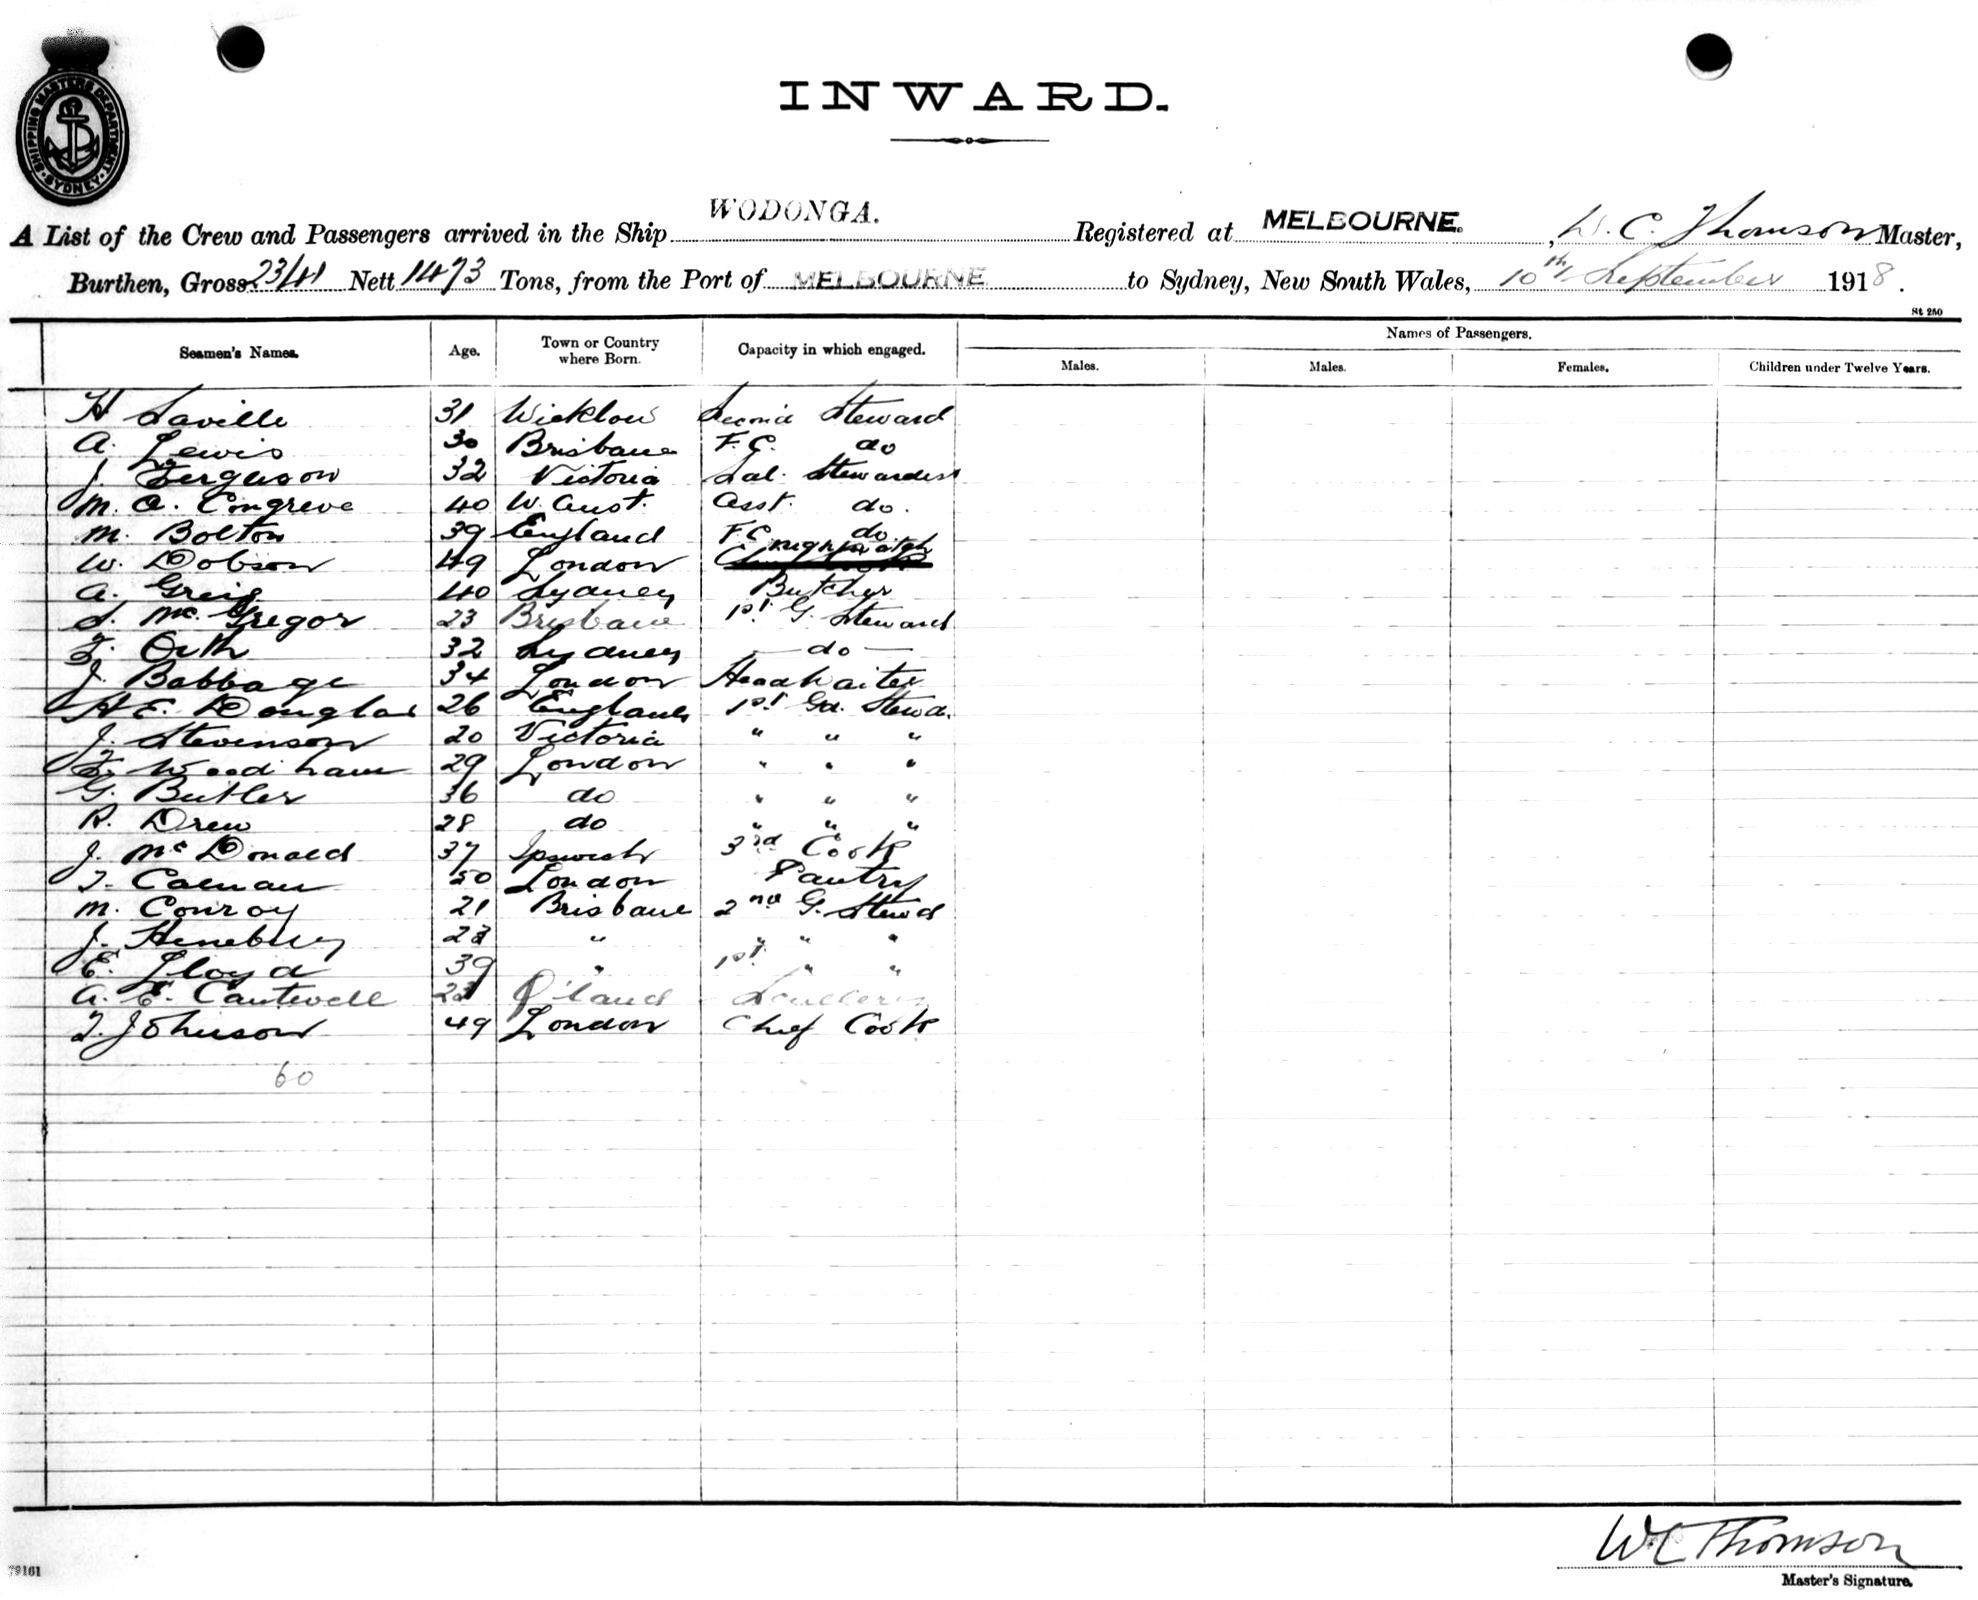 SHIPPING MASTERS DEPARTMENT
SYDNEY
INWARD.
A List of the Crew and Passengers arrived in the Ship WODONGA. Registered at MELBOURNE. W. C. Thomson Master,
Burthen, Gross 2341 Nett 1473 Tons, from the Port of MELBOURNE to Sydney, New South Wales, 10th September 1918.
St 250
Seamen's Names. Age. Town or Country where Born. Capacity in which engaged. Names of Passengers.
Males. Males. Females. Children under Twelve Years.
H Saville 31 Wicklow Second Steward
A. Lewis 30 Brisbane F.C. do
J. Ferguson 32 Victoria Sal. Stewardess
M. A. Congreve 40 W. Aust. Asst. do.
M. Bolton 39 England F.C. do
W. Dobson 49 London nightwatch
A. Greig 40 Sydney Butcher
S. McGregor 23 Brisbane 1st G. Steward
F. Orth 32 Sydney do
J. Babbage 34 London Headwaiter
H E. Douglas 26 England 1st Gd. Stewd.
J. Stevenson 20 Victoria " " "
F. Woodham 29 London " " "
G. Butler 36 do " " "
R. Drew 28 do " " "
J. McDonald 37 Ipswich 3rd Cook
T. Calnan 50 London Pantry
M. Conroy 21 Brisbane 2nd G. Stewd
J. Henebery " " " "
E. Lloyd 39 " 1st " "
A. E. Cantwell Q'land Scullery
T. Johnson 49 London Chief Cook
60
WC Thomson
Master's Signature.
79161